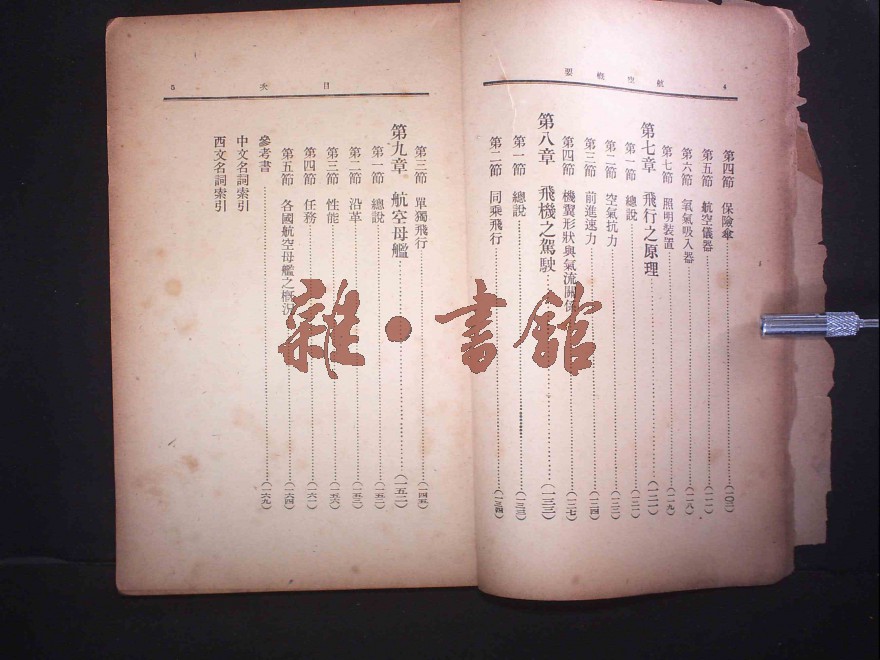 航空概要 4
第四節 保險傘
第五節 航空儀器
第六節 氧氣吸入器 (一一八)
第七節 照明裝置 (一一九)
第七章 飛行之原理 (一二一)
第一節 總說 (一二一)
第二節 空氣抗力
第三節 前進速力 (一二四)
第四節 機翼形狀與氣流關係 (一二七)
第八章 飛機之駕駛 (一三三)
第一節 總說 (一三三)
第二節 同乘飛行 (一三四)
目次 5
第三節 單獨飛行 (一四五)
第九章 航空母艦 (一五二)
第一節 總說 (一五二)
第二節 沿革 (一五三)
第三節 性能 (一五六)
第四節 任務 (一六一)
第五節 各國航空母艦之概況 (一六四)
參考書 (一六九)
中文名詞索引
西文名詞索引
雜·書館